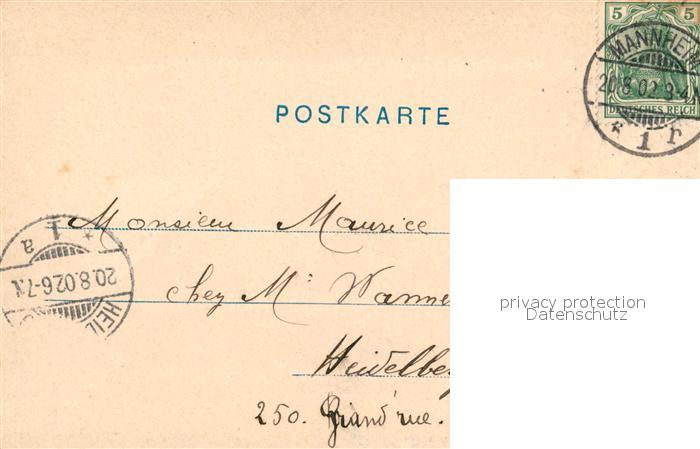 5 5
MANNHEIM
20.8.02 3-4
DEUTSCHES REICH
* 1 r
POSTKARTE
Monsieur Maurice
chez Mr Wanne
Heidelbe
250. Grand'rue.
HEI
20.8.02 6-7N
* 1 a
privacy protection
Datenschutz